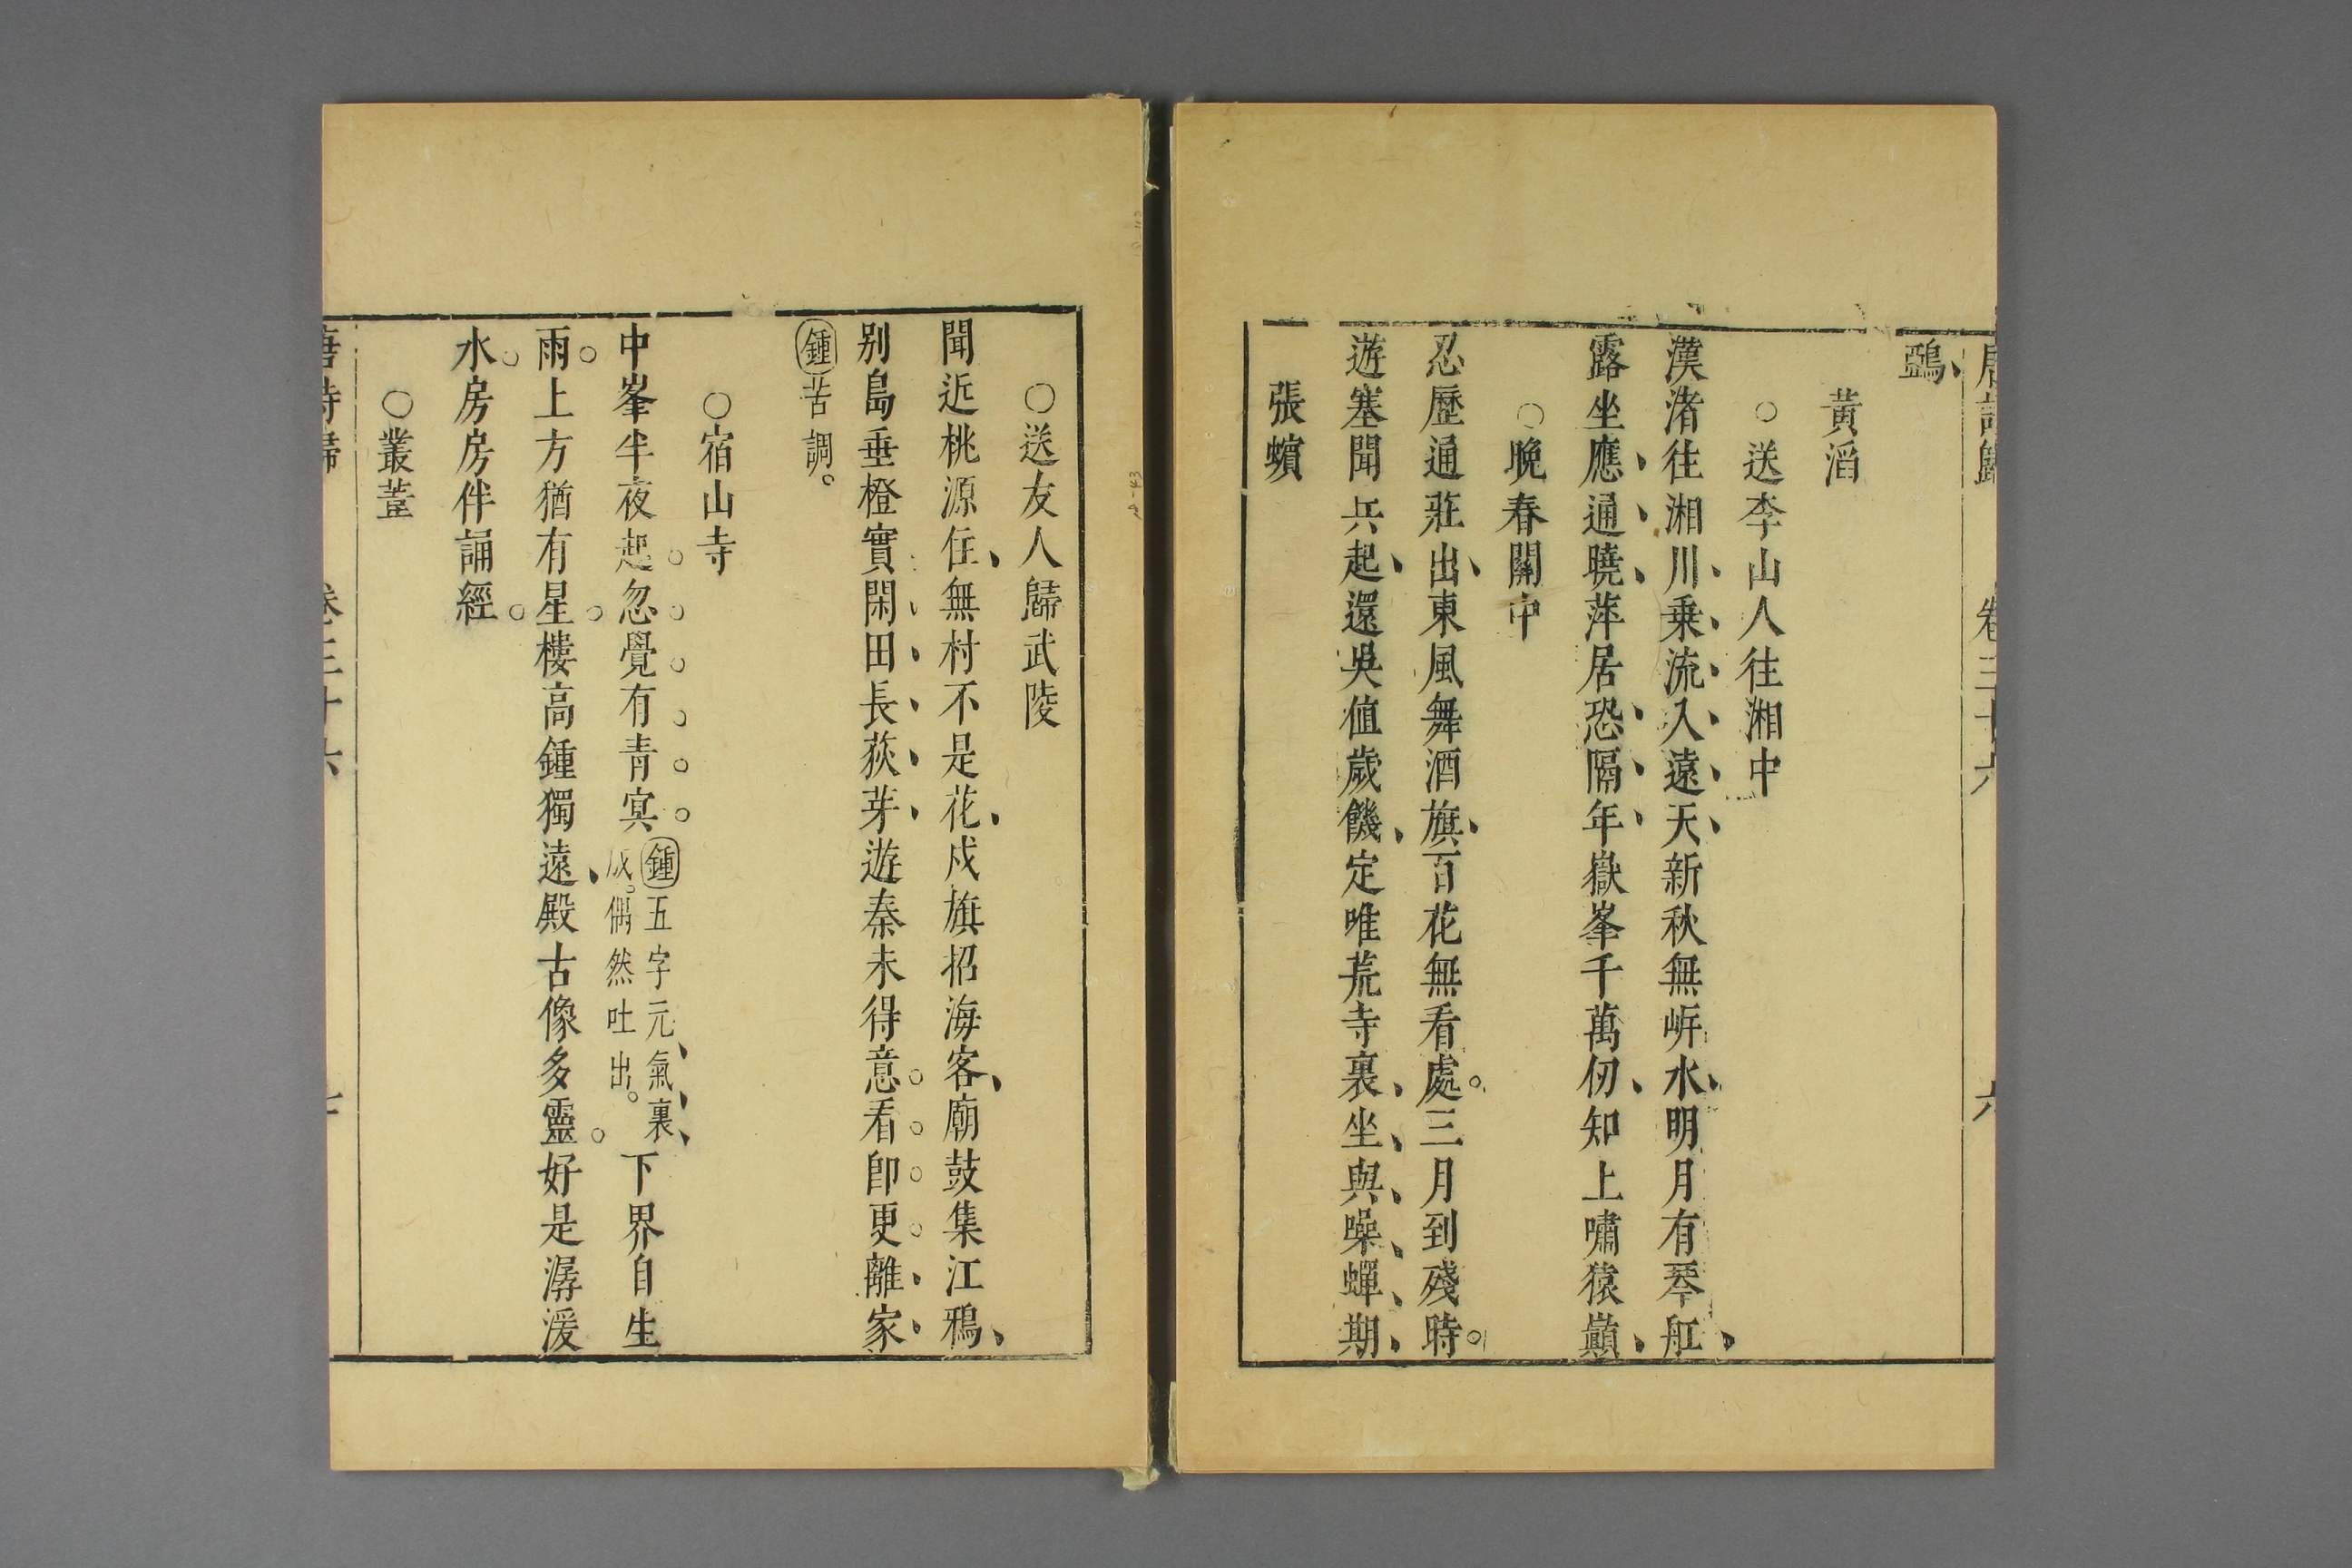 唐詩歸 卷三十六 六
鵶
黃滔
○送李山人往湘中
漢渚往湘川乗流入遠天新秋無㟁水明月有琴舡
露坐應通曉萍居恐隔年嶽峯千萬仞知上嘯猿巔
○晚春關中
忍歷通莊出東風舞酒旗百花無看處三月到殘時
遊塞聞兵起還吳值歲饑定唯荒寺裏坐與噪蟬期
張蠙
○送友人歸武陵
聞近桃源住無村不是花戍旗招海客廟鼓集江鴉
别島垂橙實閑田長荻芽遊秦未得意看卽更離家
鍾苦調。
○宿山寺
中峯半夜起忽覺有青冥鍾五字元氣裏成。偶然吐出。下界自生
雨上方猶有星樓高鍾獨遠殿古像多靈好是潺湲
水房房伴誦經
○叢葦
唐詩歸 卷三十六 七